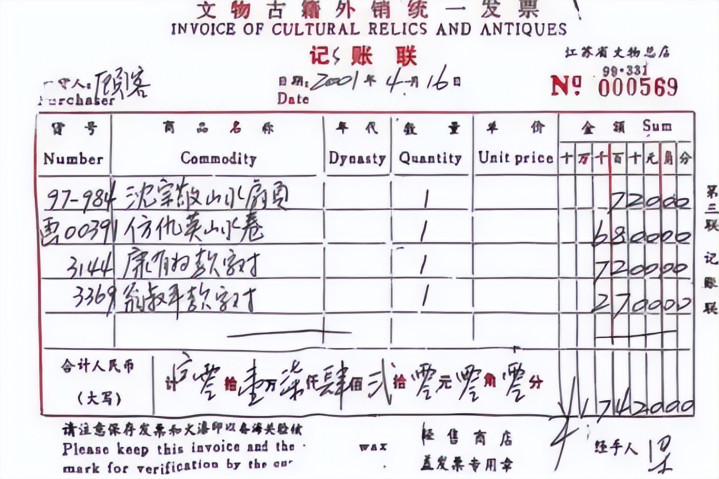 文物古籍外销统一发票
INVOICE OF CULTURAL RELICS AND ANTIQUES
记账联
江苏省文物总店
99·331
人: 顾客
日期: 2001年4月16日
Nº 000569
Purchaser
Date
货号 商品名称 年代 数量 单价 金额 Sum
Number Commodity Dynasty Quantity Unit price 十万千百十元角分
97-984 沈宗敬山水扇页 1 72000
画00391 仿仇英山水卷 1 680000
3144 康有为款字对 1 720000
3369 翁叔平款字对 1 270000
合计人民币 (大写) 计 零拾壹万柒仟肆佰贰拾零元零角零分 ¥1742000
第三联 记账联
请注意保存发票和火漆印以备海关验核
Please keep this invoice and the wax
mark for verification by the
经售商店
盖发票专用章
经手人 梁